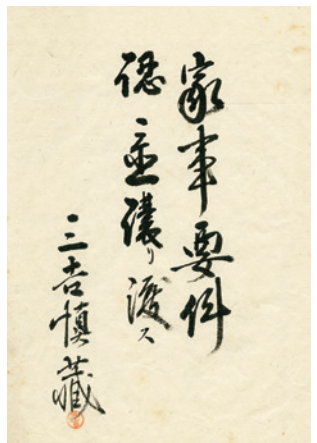 家事要件
認メ置譲リ渡ス
三吉慎蔵